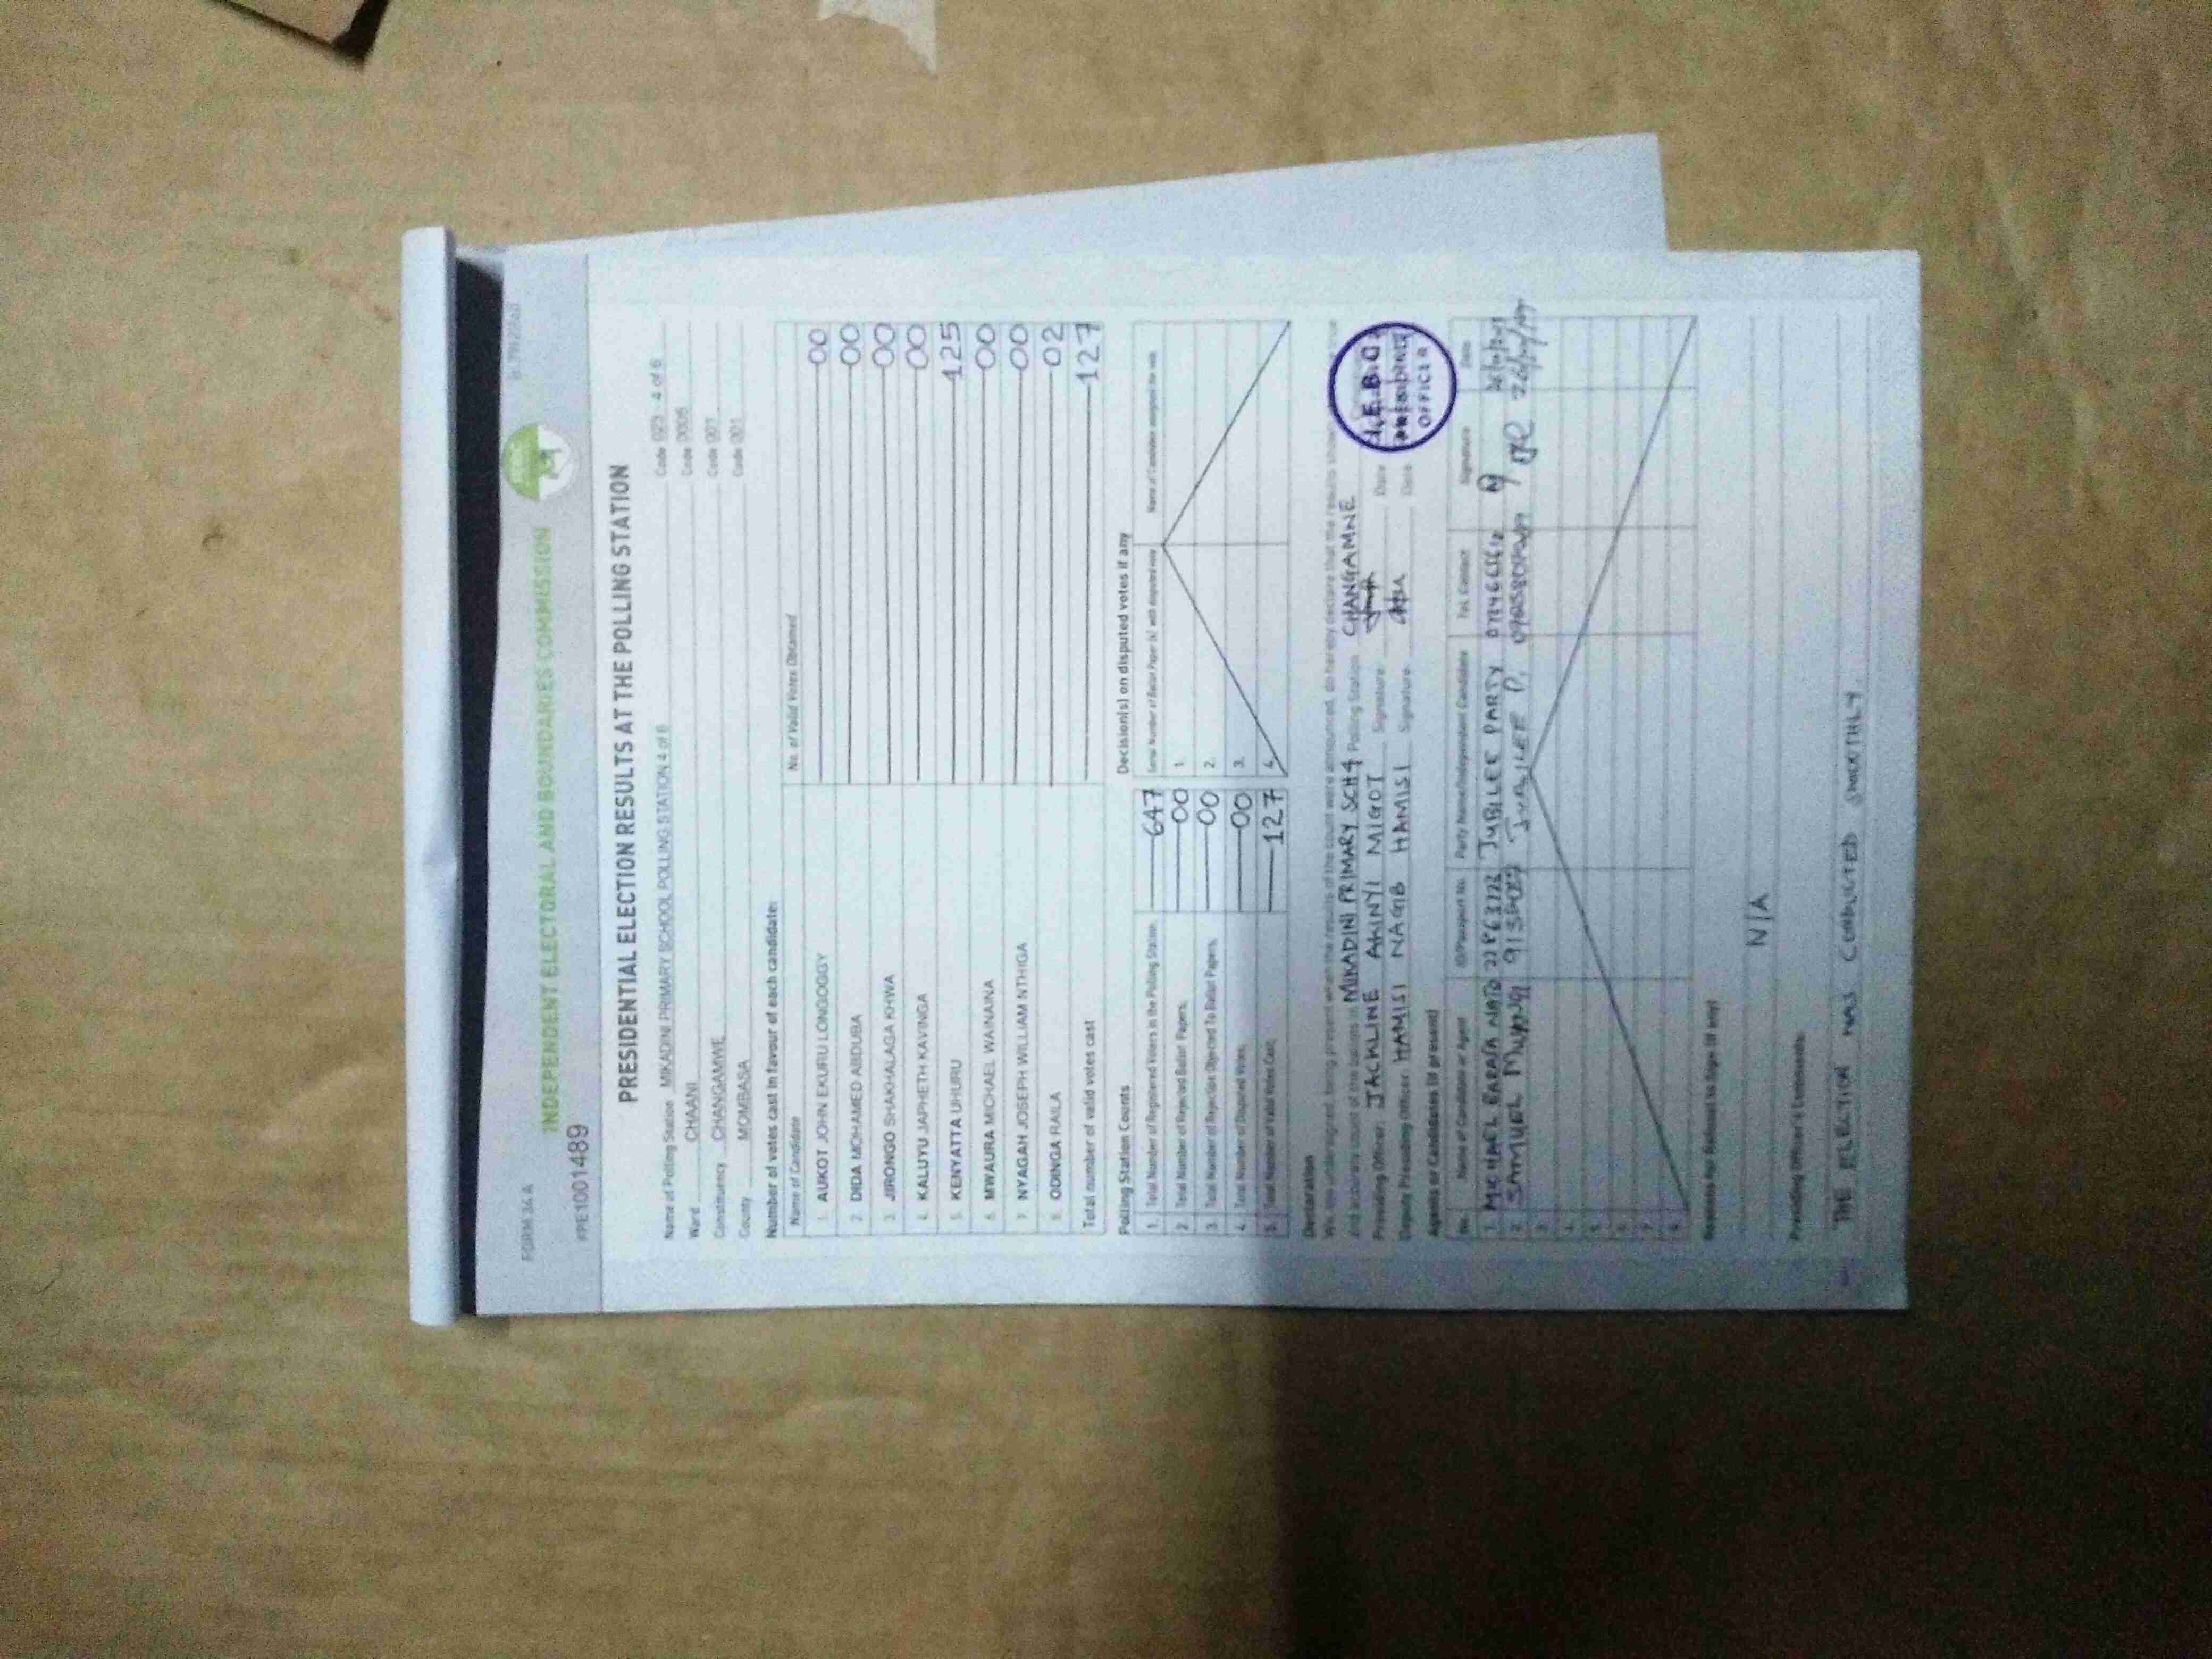 FORM 34A
INDEPENDENT ELECTORAL AND BOUNDARIES COMMISSION
PPE1001489
PRESIDENTIAL ELECTION RESULTS AT THE POLLING STATION
Name of Polling Station MIKADINI PRIMARY SCHOOL POLLING STATION 4 of 6 Code 023 4 of 6
Ward CHAANI Code 0005
Constituency CHANGAMWE Code 001
County MOMBASA Code 001
Number of votes cast in favour of each candidate:
Name of Candidate No. of Valid Votes Obtained
1. AUKOT JOHN EKURU LONGOGGY 00
2. DIDA MOHAMED ABDUBA 00
3. JIRONGO SHAKHALAGA KHWA 00
4. KALUYU JAPHETH KAVINGA 00
5. KENYATTA UHURU 125
6. MWAURA MICHAEL WAINAINA 00
7. NYAGAH JOSEPH WILLIAM NTHIGA 00
8. ODINGA RAILA 02
Total number of valid votes cast 127
Polling Station Counts
1. Total Number of Registered Voters in the Polling Station 647
2. Total Number of Rejected Ballot Papers. 00
3. Total Number of Rejection Objected To Ballot Papers. 00
4. Total Number of Disputed Votes. 00
5. Total Number of Valid Votes Cast. 127
Decision(s) on disputed votes if any
Serial Number of Ballot Paper (s) with disputed vote Name of Candidate assigned the vote
1.
2.
3.
4.
Declaration
We, the undersigned, being present when the results of the count were announced, do hereby declare that the results
and accurate count of the ballots in MIKADINI PRIMARY SCH 4 Polling Station CHANGAMNE
Presiding Officer JACKLINE AKINYI MIGOT Signature Date
Deputy Presiding Officer HAMISI NAGIB HAMISI Signature Date
I.E.B.C
PRESIDING
OFFICER
Agents or Candidates (if present)
No. Name of Candidate or Agent ID/Passport No. Party Name/Independent Candidate Tel. Contact Signature Date
1. MICHAEL BARASA JUBILEE PARTY
2. SAMUEL JUBILEE P.
3.
4.
5.
6.
7.
8.
Reasons for Refusal to Sign (if any)
N/A
Presiding Officer's Comments:
THE ELECTION WAS CONDUCTED SMOOTHLY.